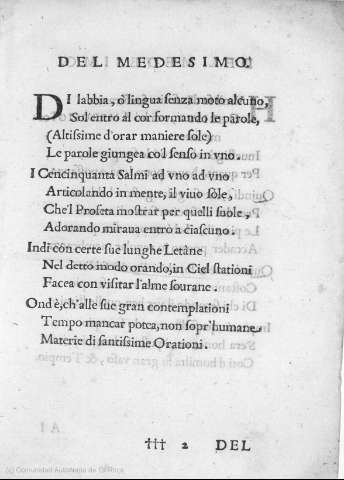 DEL MEDESIMO.
DI labbia, ò lingua senza moto alcuno,
Sol entro al cor formando le parole,
(Altissime d'orar maniere sole)
Le parole giungea col senso in vno.
I Cencinquanta Salmi ad vno ad vno
Articolando in mente, il viuo Sole,
Che'l Profeta mostrar per quelli suole,
Adorando miraua entro a ciascuno.
Indi con certe sue lunghe Letàne
Nel detto modo orando, in Ciel stationi
Facea con visitar l'alme sourane.
Ond'è, ch'alle sue gran contemplationi
Tempo mancar potea, non sopr'humane
Materie di santissime Orationi.
††† 2 DEL
(c) Comunidad Autónoma de La Rioja